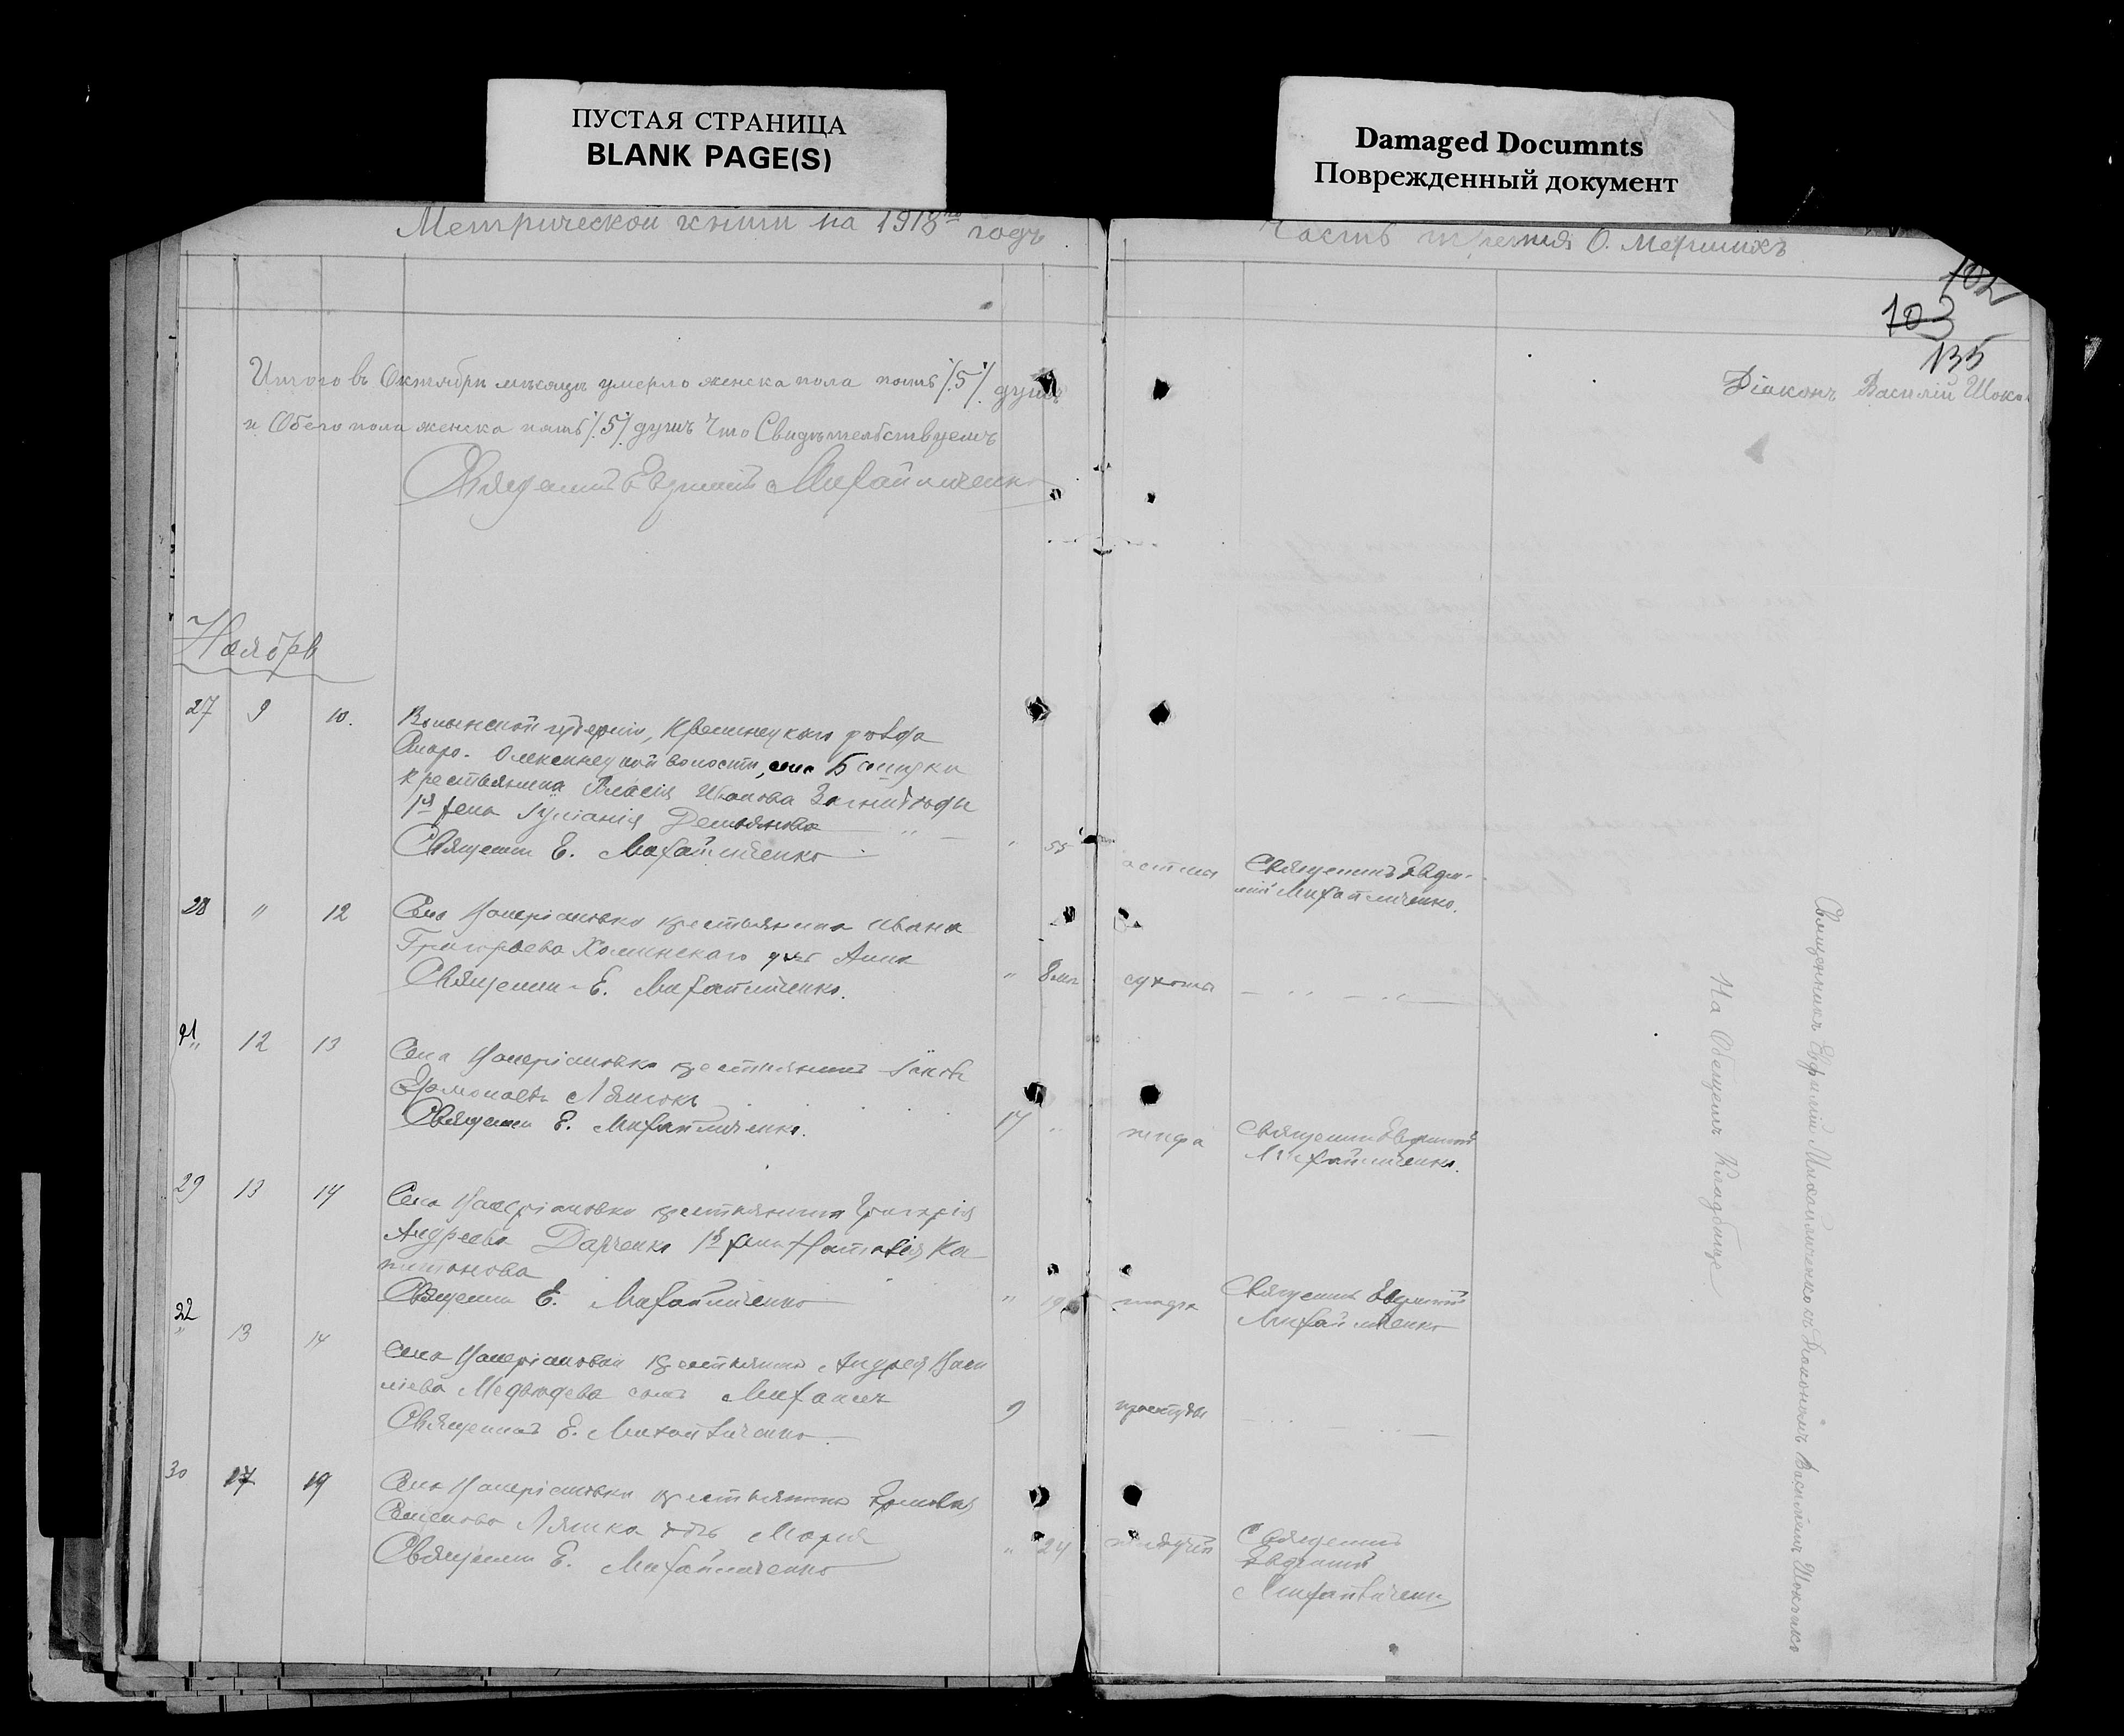 ПУСТАЯ СТРАНИЦА
BLANK PAGE(S)
Damaged Documnts
Поврежденный документ
Метрической книги на 1918 годъ
Часть третия О. Мершихъ
102
103
135
Итого въ Октябри мѣсяцѣ умерло женска пола пять /5/ душъ
и Обего пола женска пять /5/ душъ Что Свидѣтельствуемъ
Священникъ Евфимій Михайличенко
Діаконъ Василій Шоко
Ноябрь
27 9 10. Волынской губерніи, Кременецкаго уѣзда
Старо-Олексинецкой волости, села
крестьянина Власія Иванова
1я жена Іуліанія Демьянова
Священникъ Е. Михайличенко " 55 астма Священникъ Евфи-
мій Михайличенко.
28 " 12 Села Валеріановка крестьянина Ивана
Григорьева Холминскаго дочь Анна
Священник Е. Михайличенко. " 8 мѣс сухоты — " — " —
21 " 12 13 Села Валеріановка крестьянинъ Іаковъ
Ермолаевъ Ляшокъ
Священник Е. Михайличенко. 17 " тифа Священник Евфимій
Михайличенко.
29 13 14 Села Валеріановка крестьянина Григорія
Андреева 1я жена Наталія Ка-
питонова
Священник Е. Михайличенко " 19 тифа Священникъ Евфимій
Михайличенко
22 " 13 14 Села Валеріановка крестьянина Андрея Васи
лiева Медведева сынъ Михаилъ
Священникъ Е. Михайличенко. 9 простуды — " —
30 17 19 Села Валеріановка крестьянина Ермолая
Семенова Ляшка дочь Марія
Священник Е. Михайличенко " 24 Священникъ
Евфимій
Михайличенко
На Обещемъ Кладбище
Священникъ Евфимій Михайличенко съ Діакономъ Василіемъ Шокотко